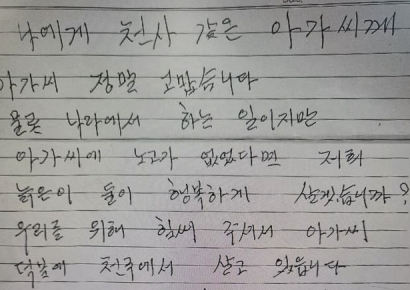 나에게 천사 같은 아가씨께
아가씨 정말 고맙습니다
물론 나라에서 하는 일이지만
아가씨에 노고가 없었다면 저희
늙은이 들이 행복하게 살겠습니까?
우리를 위해 힘써 주셔서 아가씨
덕분에 천국에서 살고 있읍니다